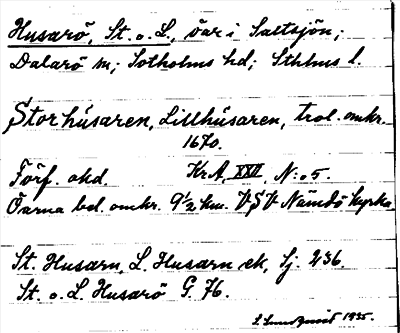 Husarö, St. o. L., öar i Saltsjön;
Dalarö sn; Sotholms hd; Sthlms l.
Storhusaren, Lillhusaren, trol. omkr.
1670.
Förf. okd. Kr.A. XXII, N:o 5.
Öarna bel. omkr. 9½ km. VSV Nämdö kyrka
St. Husarn, L. Husarn ek, Sj. 236.
St. o. L. Husarö G. 76.
1935.